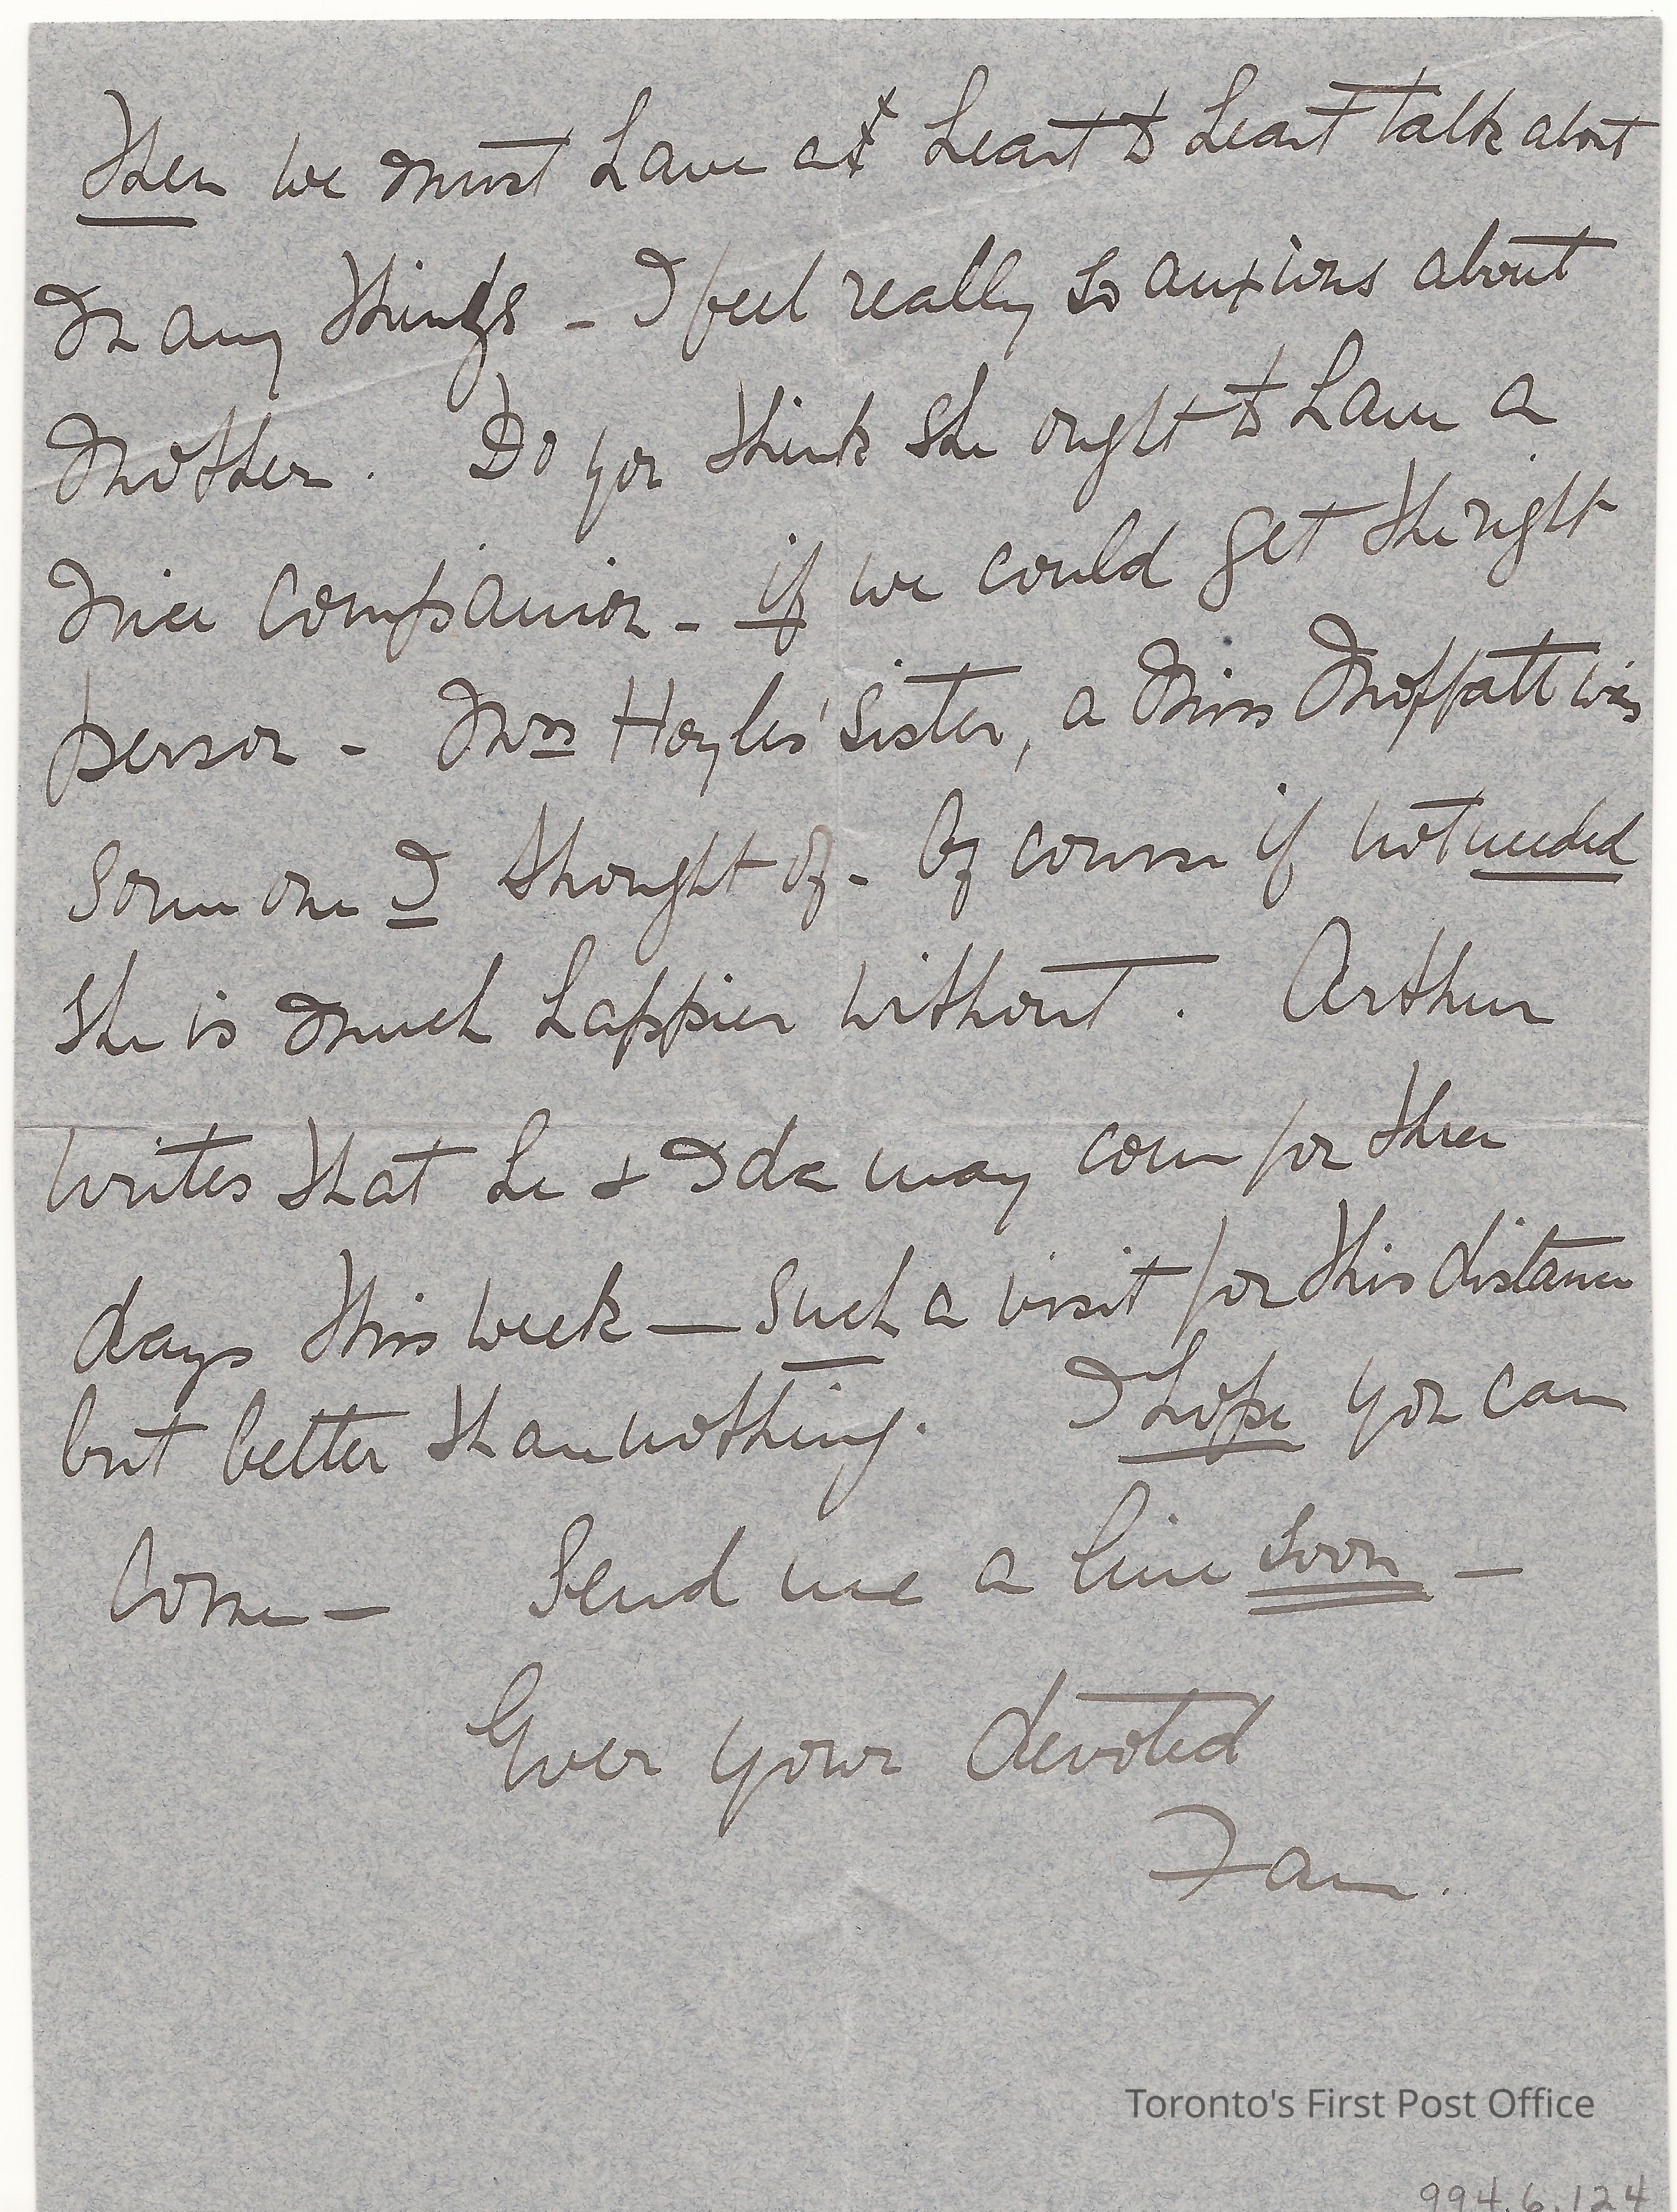 Then we must have a heart to heart talk about
many things - I feel really so anxious about
Mother. Do you think she ought to have a
nice companion - if we could get the right
person - Mrs Hoyles' sister, a Miss Moffatt was
some one I thought of - Of course if not needed
she is much happier without. Arthur
writes that he & Ida may come for three
days this week — Such a visit for this distance
but better than nothing. I hope you can
come — Send me a line soon —
Ever your devoted
Fan.
Toronto's First Post Office
994.6.124